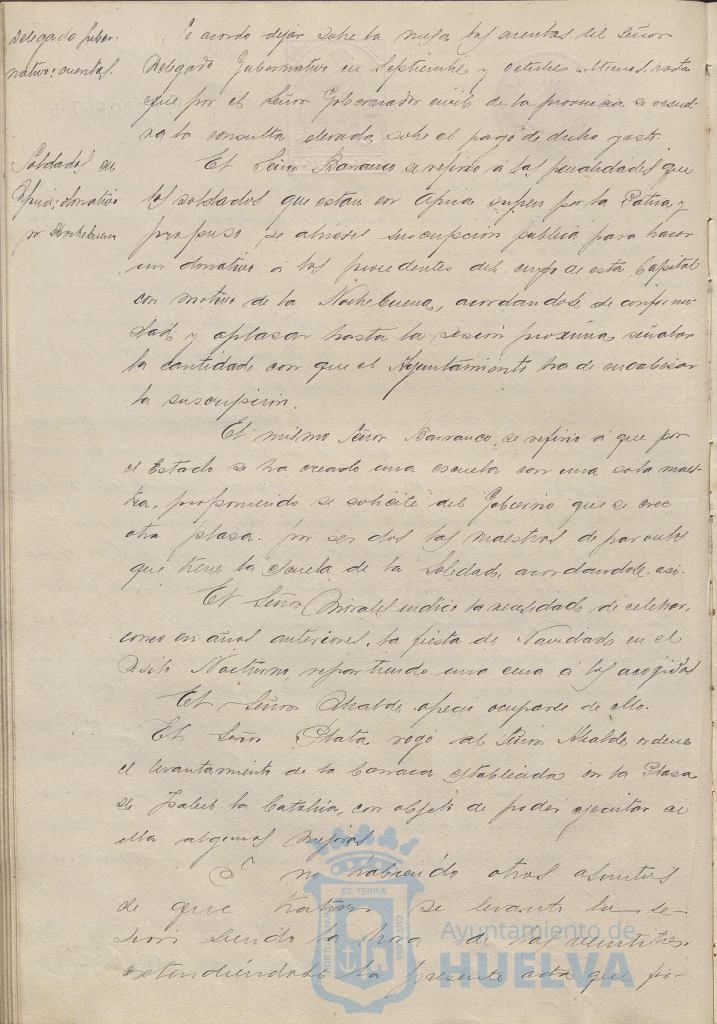 Delegado Guber-
nativo: cuentas.
Se acordo dejar sobre la mesa las cuentas del Señor
Delegado Gubernativo en Septiembre y Octubre ultimos, hasta
que por el Señor Gobernador civil de la provincia se resuel-
va la consulta elevada sobre el pago de dicho gasto.
Soldados en
Africa: donativo
por Nochebuena
El Señor Barranco se refirio á las penalidades que
los soldados que estan en Africa sufren por la Patria y
propuso se abriese suscripción publica para hacer
un donativo á los procedentes del cupo de esta Capital
con motivo de la Nochebuena, acordandose de conformi-
dad y aplazar hasta la sesión proxima señalar
la cantidad con que el Ayuntamiento ha de encabezar
la suscripción.
El mismo Señor Barranco, se refirio á que por
el Estado se ha creado una escuela con una sola maes-
tra, proponiendo se solicite del Gobierno que se cree
otra plaza, por ser dos las maestras de parvulos
que tiene la Escuela de la Soledad, acordandose asi.
El Señor Morales indicó la necesidad de celebrar,
como en años anteriores, la fiesta de Navidad en el
Asilo Nocturno, repartiendo una cena á los acogidos
El Señor Alcalde ofreció ocuparse de ello.
El Señor Plata rogó al Señor Alcalde ordene
el levantamiento de la barraca establecida en la Plaza
de Isabel la Catolica, con objeto de poder ejecutar en
ella algunas mejoras
Y no habiendo otros asuntos
de que tratar se levantó la se-
sion siendo la hora de las veintitres
extendiéndose la presente acta que fir-
PORTUS MARIS ET TERRÆ CUSTODIA
Ayuntamiento de
HUELVA